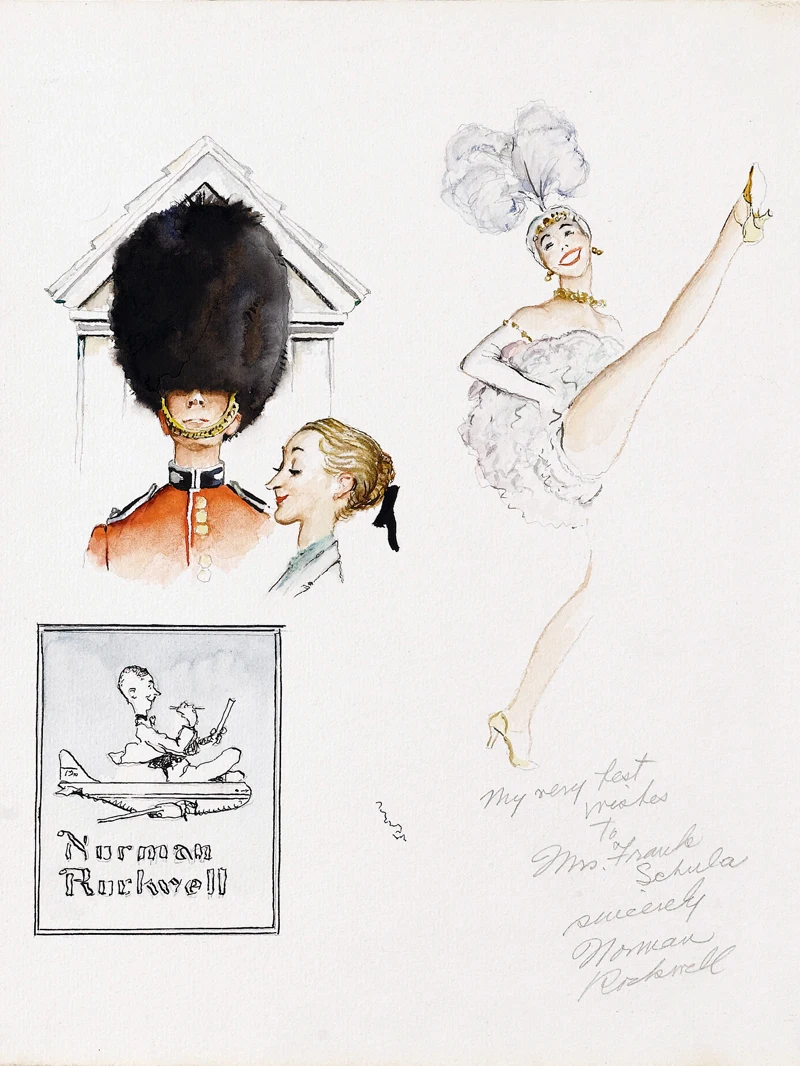 Norman
Rockwell
My very best
wishes
To
Mrs. Frank
Schula
sincerely
Norman
Rockwell